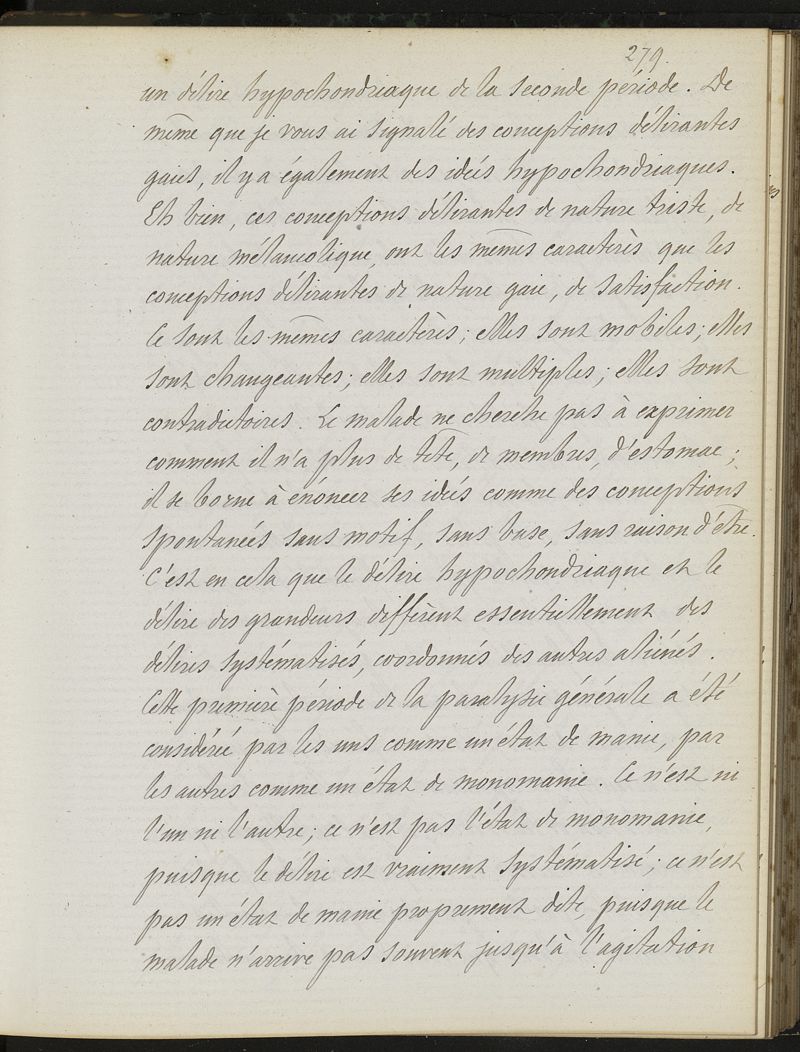 279.
un délire hypochondriaque de la seconde période. De
même que je vous ai signalé des conceptions délirantes
gaies, il y a également des idées hypochondriaques.
Eh bien, ces conceptions délirantes de nature triste, de
nature mélancolique, ont les mêmes caractères que les
conceptions délirantes de nature gaie, de satisfaction.
Ce sont les mêmes caractères; elles sont mobiles; elles
sont changeantes; elles sont multiples; elles sont
contradictoires. Le malade ne cherche pas à exprimer
comment il n'a plus de tête, de membres, d'estomac;
il se borne à énoncer ses idées comme des conceptions
spontanées sans motif, sans base, sans raison d'être.
C'est en cela que le délire hypochondriaque et le
délire des grandeurs diffèrent essentiellement des
délires systématisés, coordonnés des autres aliénés.
Cette première période de la paralysie générale a été
considérée par les uns comme un état de manie, par
les autres comme un état de monomanie. Ce n'est ni
l'un ni l'autre; ce n'est pas l'état de monomanie,
puisque le délire est vraiment systématisé; ce n'est
pas un état de manie proprement dite, puisque le
malade n'arrive pas souvent jusqu'à l'agitation